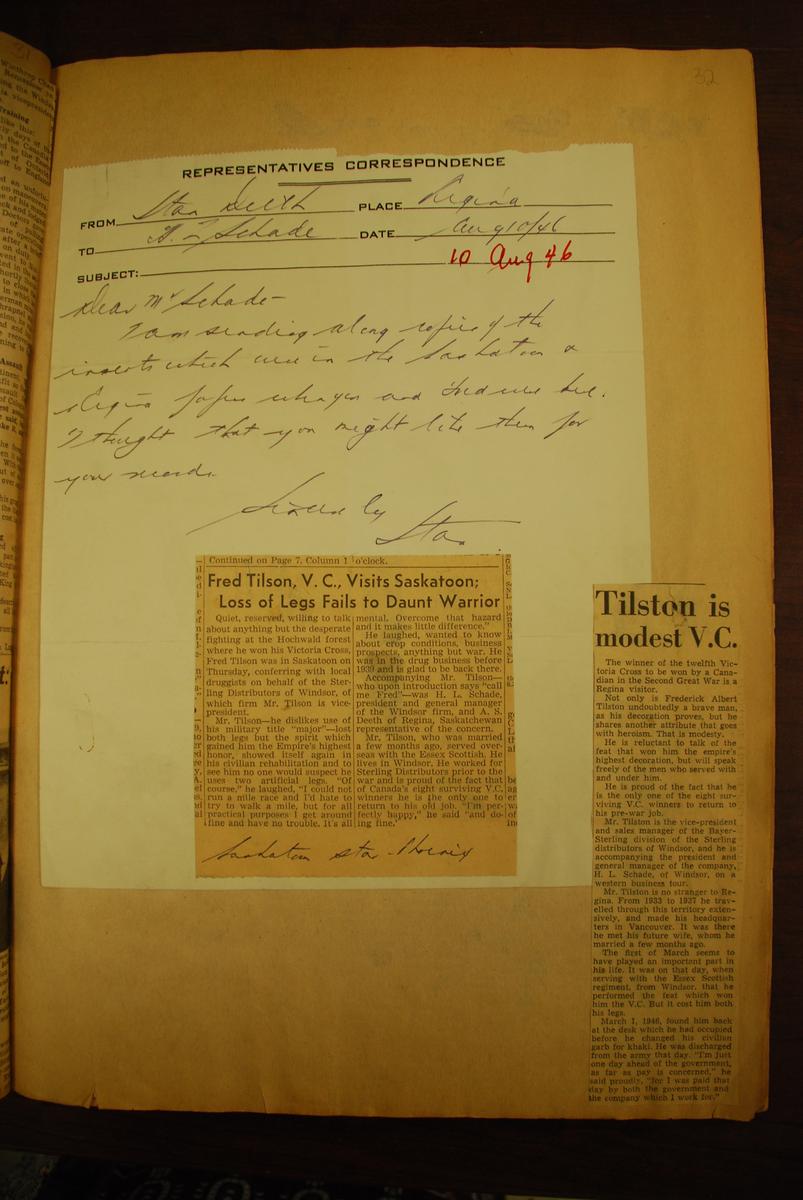 32
REPRESENTATIVES CORRESPONDENCE
FROM Stan Deeth PLACE Regina
TO H. L. Schade DATE Aug 10/46
SUBJECT: 10 Aug 46
Dear Mr Schade-
I am sending along copies of the
inserts which were in the Saskatoon &
Regina papers when you and Fred were here.
I thought that you might like them for
your records.
Sincerely
Stan
Continued on Page 7, Column 1
o'clock.
Fred Tilson, V. C., Visits Saskatoon;
Loss of Legs Fails to Daunt Warrior
Quiet, reserved, willing to talk
about anything but the desperate
fighting at the Hochwald forest
where he won his Victoria Cross,
Fred Tilson was in Saskatoon on
Thursday, conferring with local
druggists on behalf of the Ster-
ling Distributors of Windsor, of
which firm Mr. Tilson is vice-
president.
Mr. Tilson—he dislikes use of
his military title "major"—lost
both legs but the spirit which
gained him the Empire's highest
honor, showed itself again in
his civilian rehabilitation and to
see him no one would suspect he
uses two artificial legs. "Of
course," he laughed, "I could not
run a mile race and I'd hate to
try to walk a mile, but for all
practical purposes I get around
fine and have no trouble. It's all
mental. Overcome that hazard
and it makes little difference."
He laughed, wanted to know
about crop conditions, business
prospects, anything but war. He
was in the drug business before
1939 and is glad to be back there.
Accompanying Mr. Tilson—
who upon introduction says "call
me Fred"—was H. L. Schade,
president and general manager
of the Windsor firm, and A. S.
Deeth of Regina, Saskatchewan
representative of the concern.
Mr. Tilson, who was married
a few months ago, served over-
seas with the Essex Scottish. He
lives in Windsor. He worked for
Sterling Distributors prior to the
war and is proud of the fact that
of Canada's eight surviving V.C.
winners he is the only one to
return to his old job. "I'm per-
fectly happy," he said "and do-
ing fine."
Saskatoon Star-Phoenix
Tilston is
modest V.C.
The winner of the twelfth Vic-
toria Cross to be won by a Cana-
dian in the Second Great War is a
Regina visitor.
Not only is Frederick Albert
Tilston undoubtedly a brave man,
as his decoration proves, but he
shares another attribute that goes
with heroism. That is modesty.
He is reluctant to talk of the
feat that won him the empire's
highest decoration, but will speak
freely of the men who served with
and under him.
He is proud of the fact he
is the only one of the eight sur-
viving V.C. winners to return to
his pre-war job.
Mr. Tilston is the vice-president
and sales manager of the Bayer-
Sterling division of the Sterling
distributors of Windsor, and he is
accompanying the president and
general manager of the company,
H. L. Schade, of Windsor, on a
western business tour.
Mr. Tilston is no stranger to Re-
gina. From 1933 to 1937 he trav-
elled through this territory exten-
sively, and made his headquar-
ters in Vancouver. It was there
he met his future wife, whom he
married a few months ago.
The first of March seems to
have played an important part in
his life. It was on that day, when
serving with the Essex Scottish
regiment, from Windsor, that he
performed the feat which won
him the V.C. But it cost him both
his legs.
March 1, 1946, found him back
at the desk which he had occupied
before he changed his civilian
garb for khaki. He was discharged
from the army that day. "I'm just
one day ahead of the government,
as far as pay is concerned," he
said proudly, "for I was paid that
day by both the government and
the company which I work for."